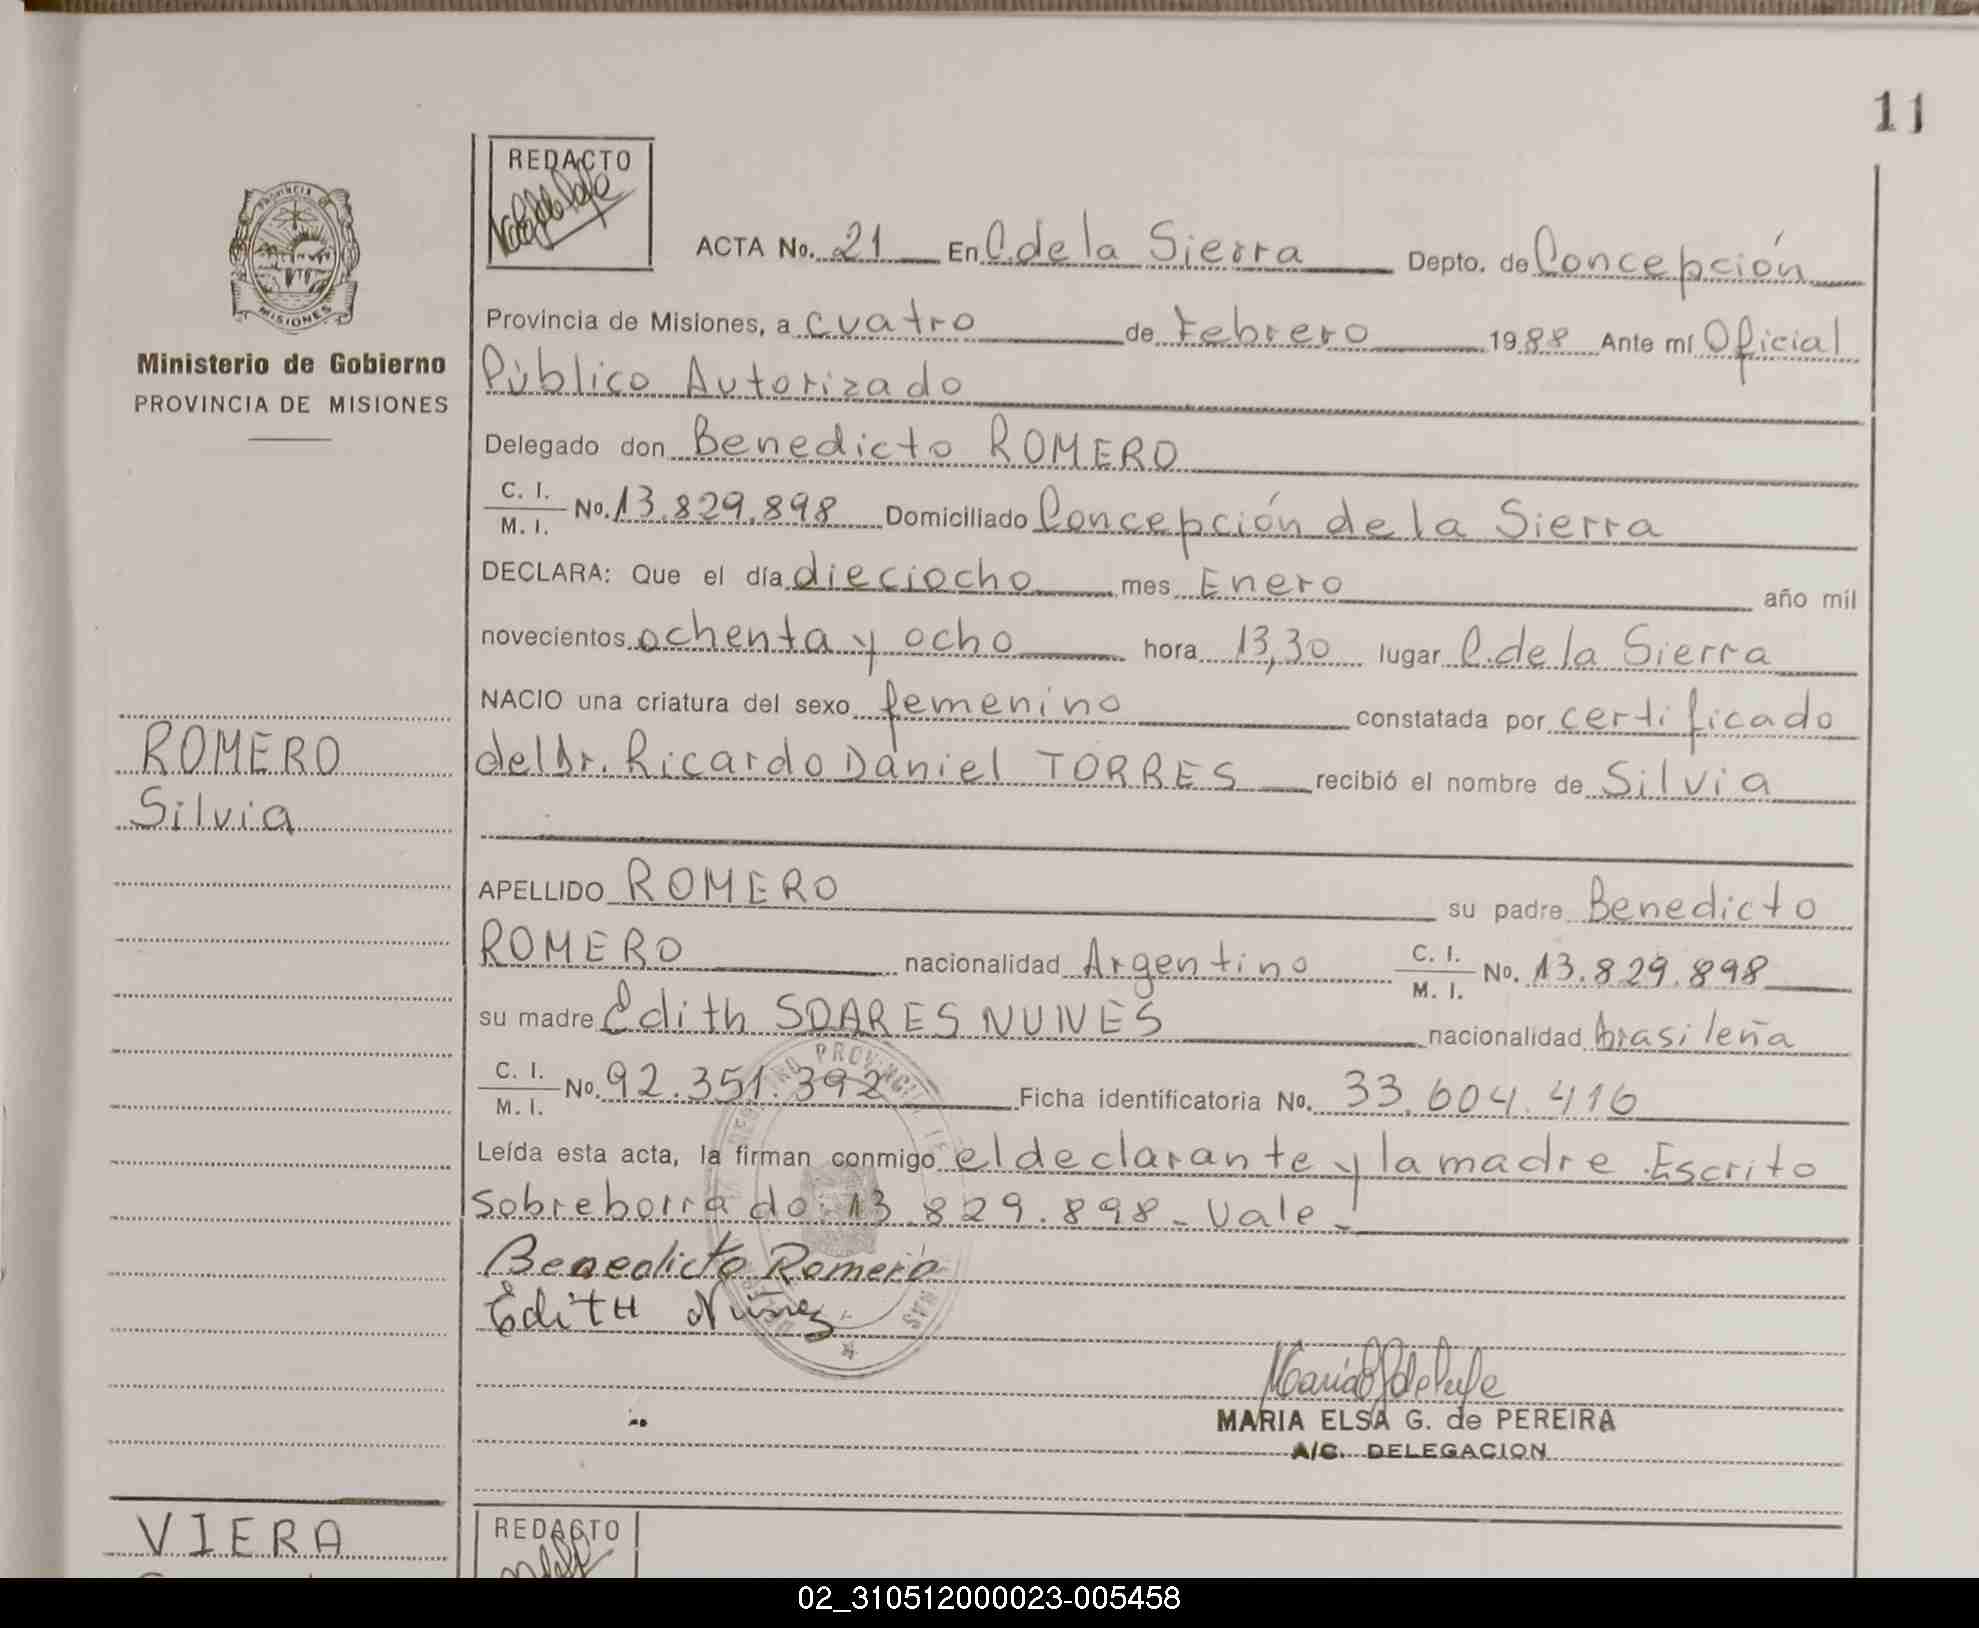 11
REDACTO
PROVINCIA
MISIONES
Ministerio de Gobierno
PROVINCIA DE MISIONES
ACTA No. 21 En C. de la Sierra Depto. de Concepción
Provincia de Misiones, a cuatro de Febrero 1988 Ante mí Oficial
Público Autorizado
Delegado don Benedicto ROMERO
C. I.
M. I. No. 13.829.898 Domiciliado Concepción de la Sierra
DECLARA: Que el día dieciocho mes Enero año mil
novecientos ochenta y ocho hora 13,30 lugar C. de la Sierra
NACIO una criatura del sexo femenino constatada por certificado
del Dr. Ricardo Daniel TORRES recibió el nombre de Silvia
ROMERO
Silvia
APELLIDO ROMERO su padre Benedicto
ROMERO nacionalidad Argentino C. I. M. I. No. 13.829.898
su madre Edith SOARES NUNES nacionalidad brasileña
C. I.
M. I. No. 92.351.392 Ficha identificatoria No. 33.604.416
Leída esta acta, la firman conmigo el declarante y la madre. Escrito
sobreborrado: 13.829.898 - Vale -
Benedicto Romero
Edith Núnes
MARIA ELSA G. de PEREIRA
A/C. DELEGACION
VIERA
REDACTO
02_310512000023-005458